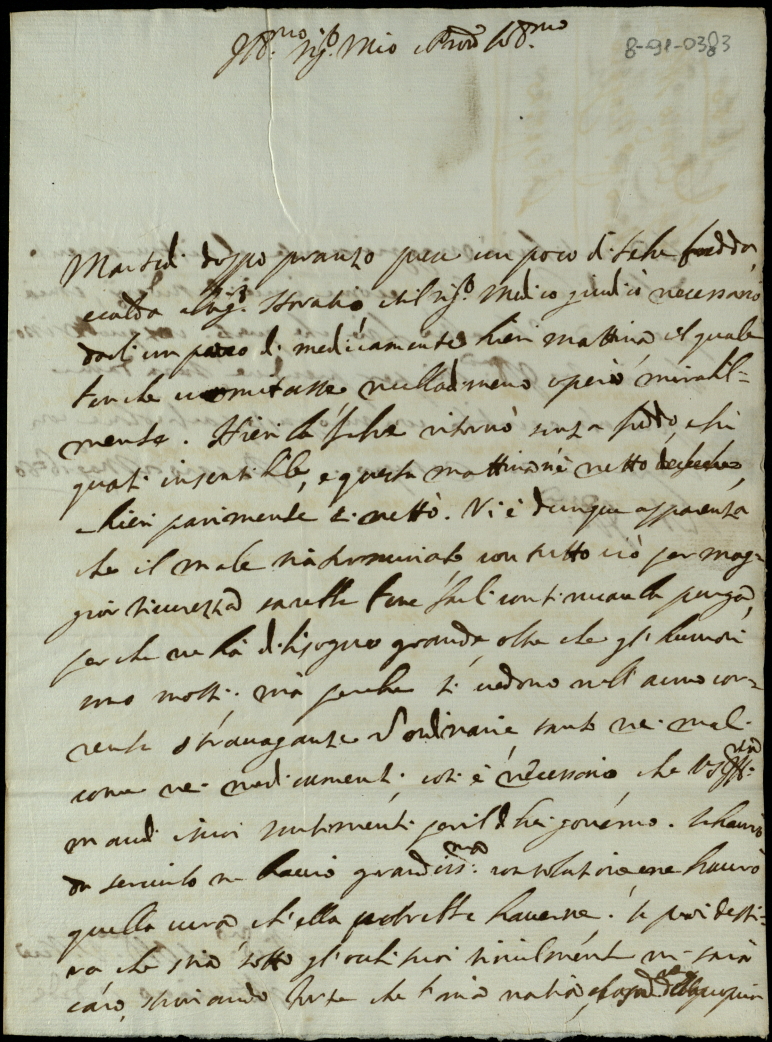 Ill.mo Sig.r Mio e Pron Col.mo
8-91-0383
Martedi doppo pranzo prese un poco di febre fredda,
e calda il Sig.r Horatio et il Sig.r Medico giudicò necessario
darli un poco di medicamento hieri mattina il quale
ben che vomitasse nulladimeno operò mirabil=
mente. Hieri la febre ritornò senza freddo, e fù
quasi insensibile, e questa mattina n'è netto
hieri parimente si nettò. Vi è dunque apparenza
che il male sia con tutto ciò per mag=
gior sicurezza sarebbe bene farli continuare la purga,
perche ne hà di bisogno grande, oltre che gl'humori
sono mossi; mà perche si vedono nell'anno cor=
rente stravaganze straordinarie, tanto nei mali
come nei medicamenti, cosi è necessario che V.S. Ill.ma
mandi i suoi sentimenti per il di lui governo. Se haurò
da servirlo ne haurò grandiss.ma consolatione e ne haurò
quella cura ch'ella potrebbe haverne. Se poi desti=
na che stia sotto gl'occhi suoi similmente mi sarà
caro, stimando forse che l'aria natia,